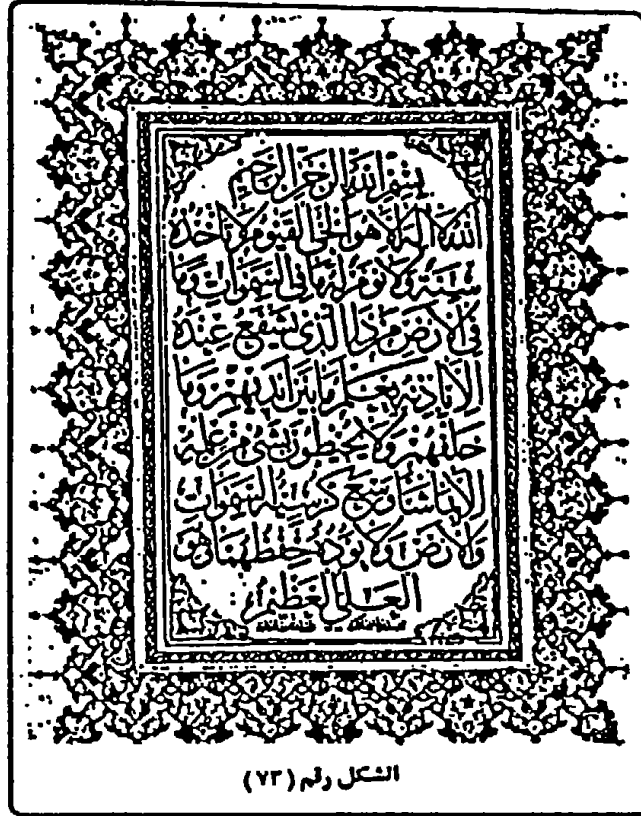 بسم الله الرحمن الرحيم
الله لا اله الا هو الحي القيوم لا تأخذه
سنة ولا نوم له ما في السموات وما
في الارض من ذا الذي يشفع عنده
الا باذنه يعلم ما بين ايديهم وما
خلفهم ولا يحيطون بشئ من علمه
الا بما شاء وسع كرسيه السموات
والارض ولا يؤده حفظهما وهو
العلي العظيم
الشكل رقم (٧٣)